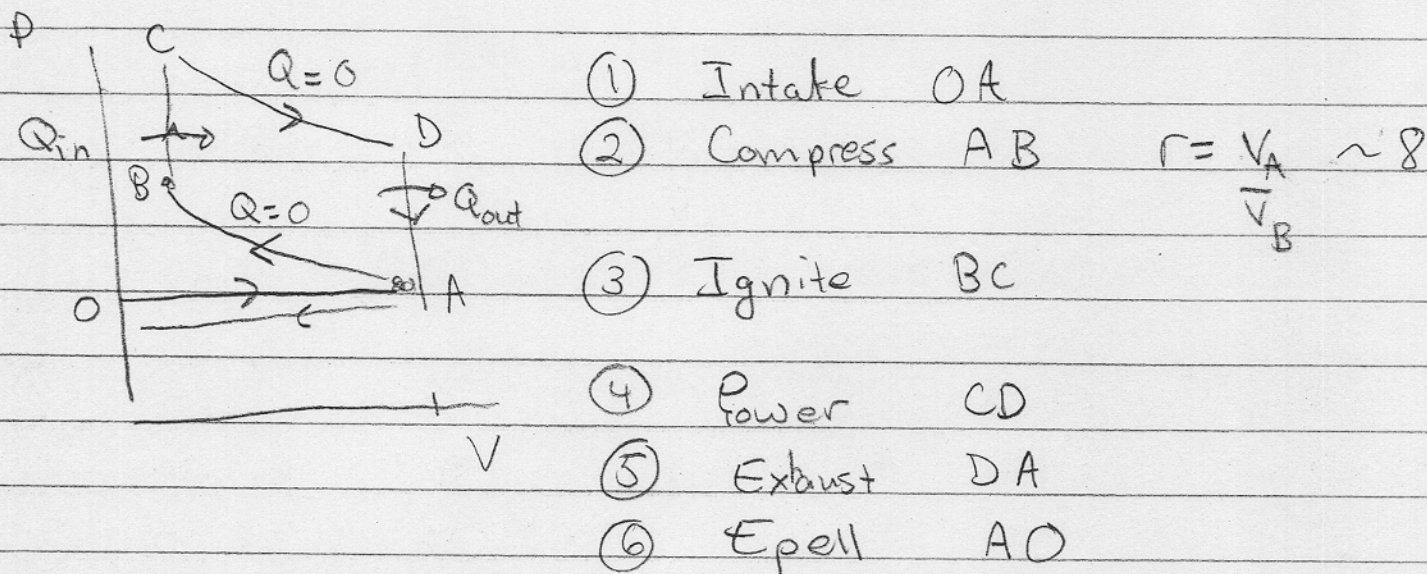 P
C
Q=0
D
Q_in
B
Q=0
Q_out
O
A
V
① Intake OA
② Compress AB r = V_A / V_B ~ 8
③ Ignite BC
④ Power CD
⑤ Exhaust DA
⑥ Epell AO